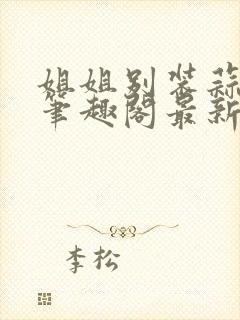 姐姐别装蒜
笔趣阁最新
李松